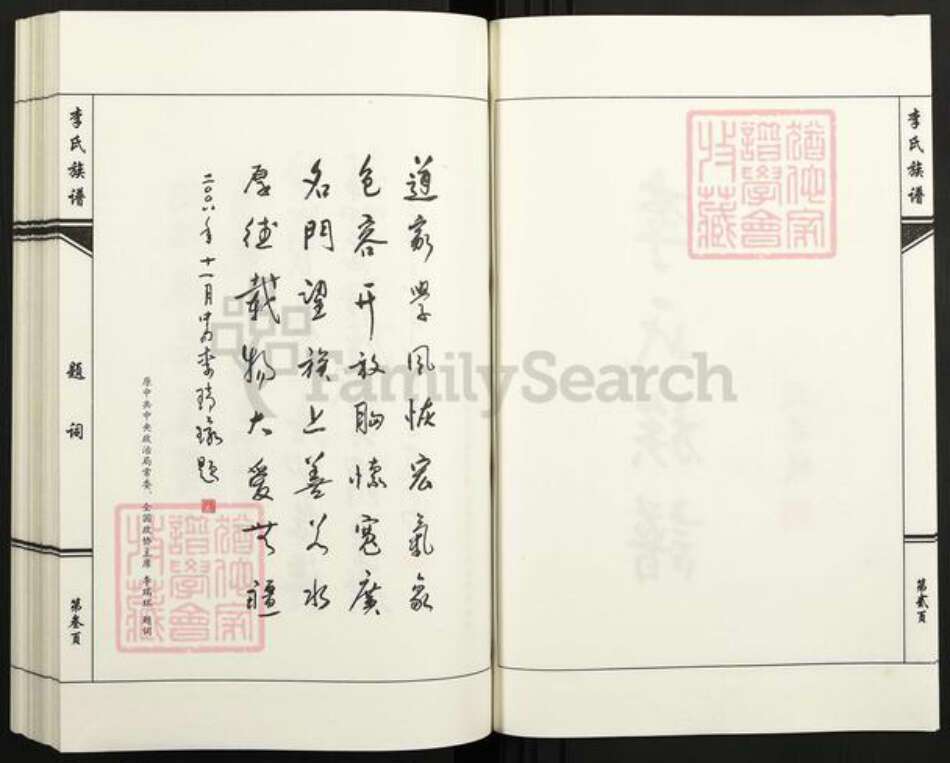 李氏族谱
第贰页
猶他家
譜學會
收藏
道家學风恢宏氣象
包容开放胸懷寬廣
名門望族上善若水
厚德載物大爱无疆
二〇〇八年十一月
李瑞环题
原中共中央政治局常委、全国政协主席 李瑞环 题词
猶他家
譜學會
收藏
李氏族谱
题词
第叁页
FamilySearch